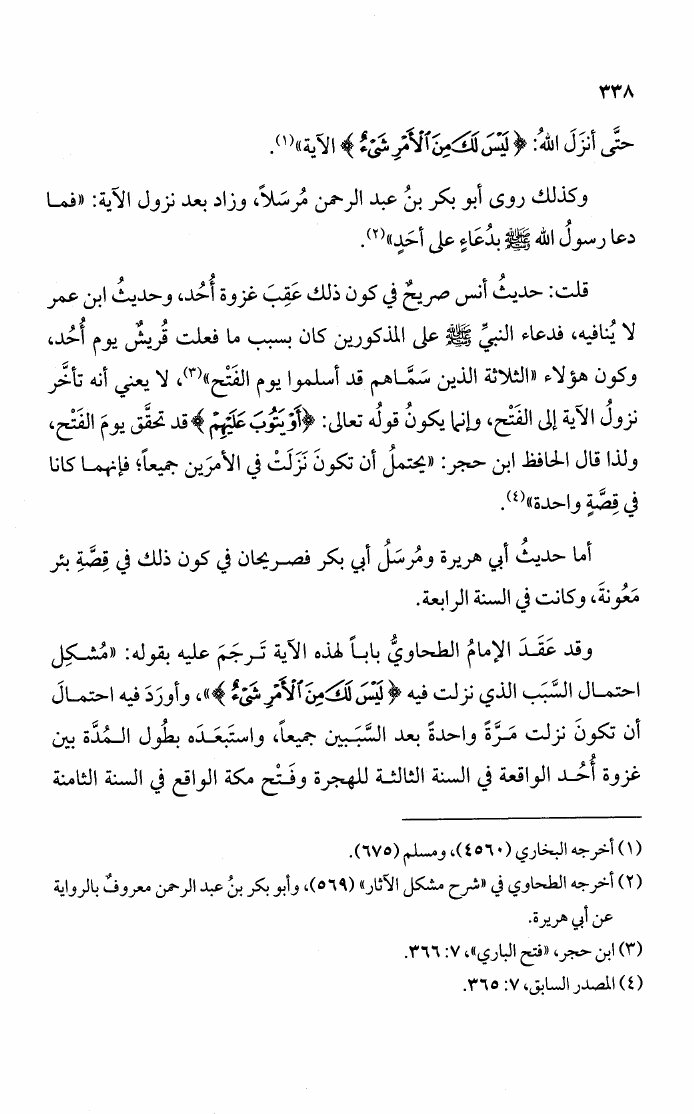 ٣٣٨
حتَّى أنزَلَ اللهُ: ﴿لَيْسَ لَكَ مِنَ ٱلْأَمْرِ شَىْءٌ﴾ الآية»(١).
وكذلك روى أبو بكر بنُ عبد الرحمن مُرسَلاً، وزاد بعد نزول الآية: «فمـا
دعا رسولُ الله ﷺ بدُعَاءٍ على أحَدٍ»(٢).
قلت: حديثُ أنس صريحٌ في كون ذلك عَقِبَ غزوة أُحُد، وحديثُ ابن عمر
لا يُنافيه، فدعاء النبيِّ ﷺ على المذكورين كان بسبب ما فعلت قُريشٌ يوم أُحُد،
وكون هؤلاء «الثلاثة الذين سَمَّـاهم قد أسلموا يوم الفَتْح»(٣)، لا يعني أنه تأخَّر
نزولُ الآية إلى الفَتْح، وإنما يكونُ قولُه تعالى: ﴿أَوْ يَتُوبَ عَلَيْهِمْ﴾ قد تحقَّق يومَ الفَتْح،
ولذا قال الحافظ ابن حجر: «يحتملُ أن تكونَ نَزَلَتْ في الأمرَين جميعاً؛ فإنهمـا كانا
في قِصَّةٍ واحدة»(٤).
أما حديثُ أبي هريرة ومُرسَلُ أبي بكر فصـريحان في كون ذلك في قِصَّةِ بئر
مَعُونةَ، وكانت في السنة الرابعة.
وقد عَقَـدَ الإمامُ الطحاويُّ بابـاً لهذه الآية تَـرجَمَ عليه بقوله: «مُشـكِل
احتمـال السَّبَب الذي نزلت فيه ﴿لَيْسَ لَكَ مِنَ ٱلْأَمْرِ شَىْءٌ﴾»، وأورَدَ فيه احتمـالَ
أن تكونَ نزلت مَـرَّةً واحدةً بعد السَّبَـبين جميعاً، واستَبعَـدَه بطُول الـمُدَّة بين
غزوة أُحُـد الواقعة في السنة الثالثـة للهجرة وفَـتْح مكة الواقع في السنة الثامنة
(١) أخرجه البخاري (٤٥٦٠)، ومسلم (٦٧٥).
(٢) أخرجه الطحاوي في «شرح مشكل الآثار» (٥٦٩)، وأبو بكر بنُ عبد الرحمن معروفٌ بالرواية
عن أبي هريرة.
(٣) ابن حجر، «فتح الباري»، ٧: ٣٦٦.
(٤) المصدر السابق، ٧: ٣٦٥.